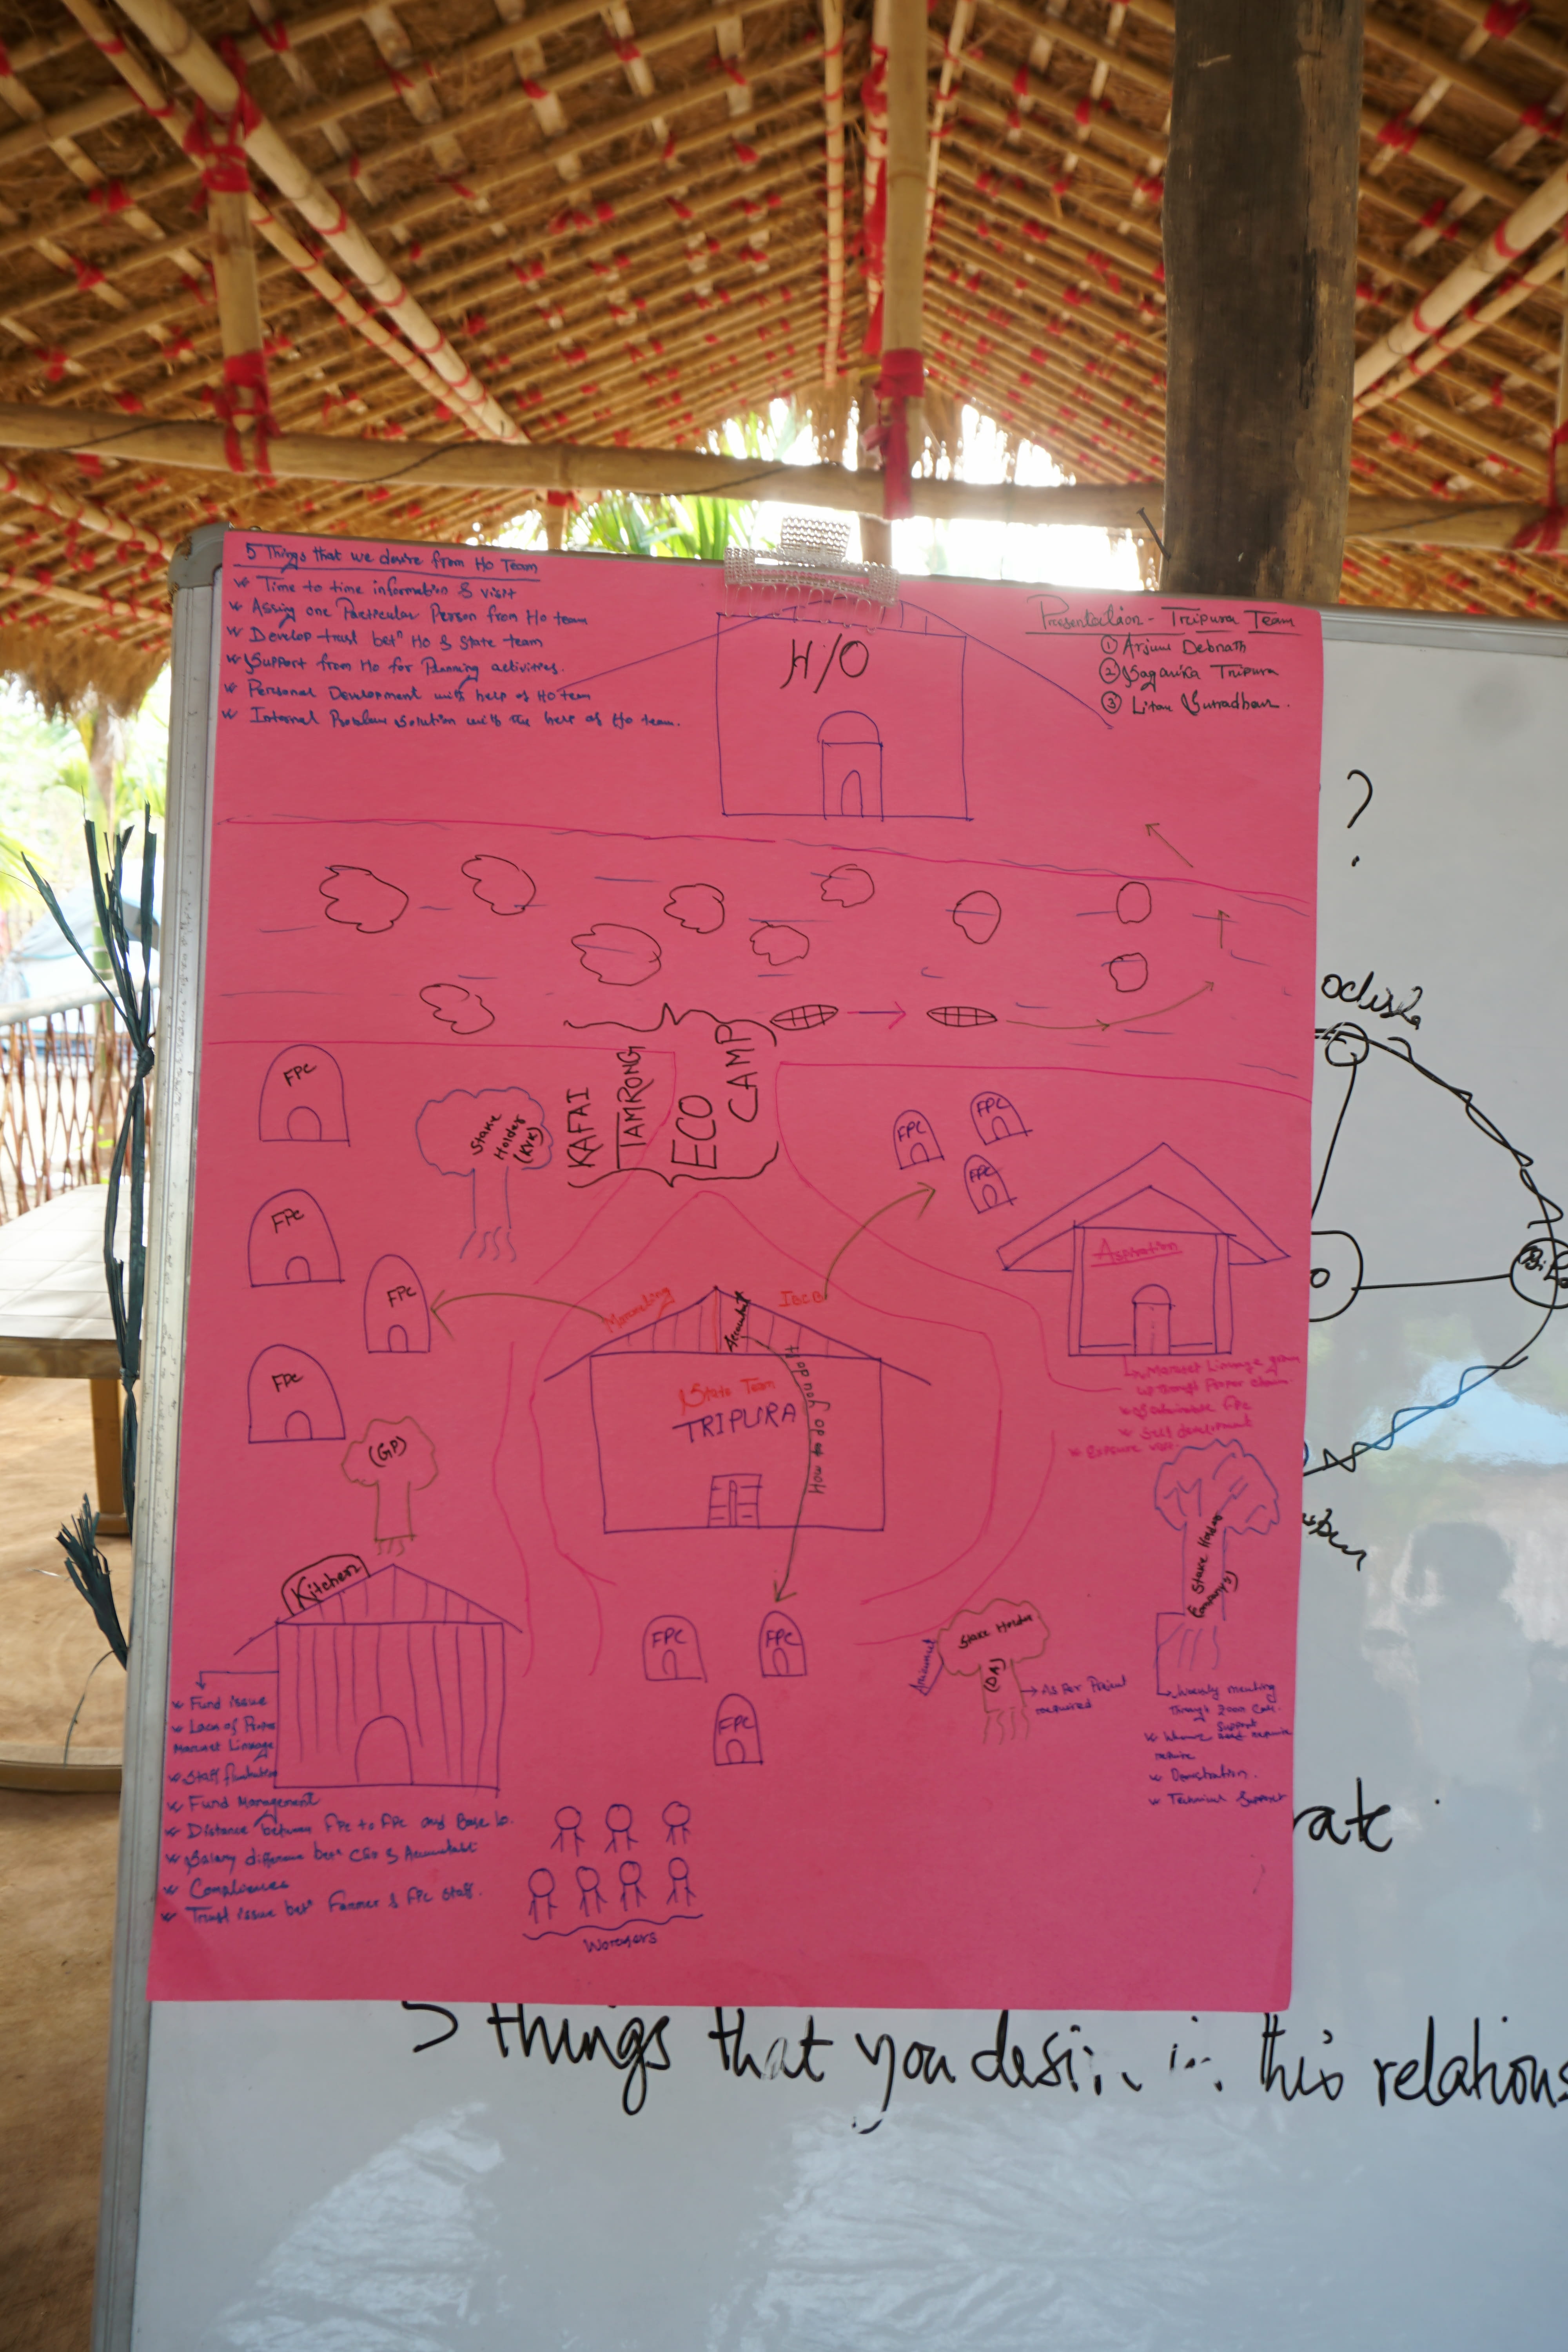 5 Things that we desire from Ho Team
Time to time information & visit
Assing one Particular Person from Ho team
Develop trust betⁿ Ho & State team
Support from Ho for Planning activities.
Personal Development with help of Ho team
Internal Problem solution with the help of Ho team.
H/O
Presentation - Tripura Team
① Arjun Debnath
② Sagarika Tripura
③ Litan Sutradhar.
?
odisha
KAFAI
TAMRONG
ECO
CAMP
FPC
Stake
Holder
(KVK)
FPC
FPC
FPC
FPC
FPC
FPC
Aspiration
Accountant
IBCB
State Team
TRIPURA
How do you do it
Market Linkage
through Proper
FPC
Self development
Exposure
(GP)
Kitchen
Stake Holder
FPC
FPC
FPC
Stake Holder
(DA)
As Per Project
required
Weekly meeting
through zoom call.
Support
require
Technical Support
Fund issue
Lack of Proper
Market Linkage
Staff
Fund Management
Distance between FPC to FPC and Base lo.
Salary difference betⁿ CEO & Accountant
Compliances
Trust issue betⁿ Farmer & FPC Staff.
Workers
rate
5 things that you desi in this relations